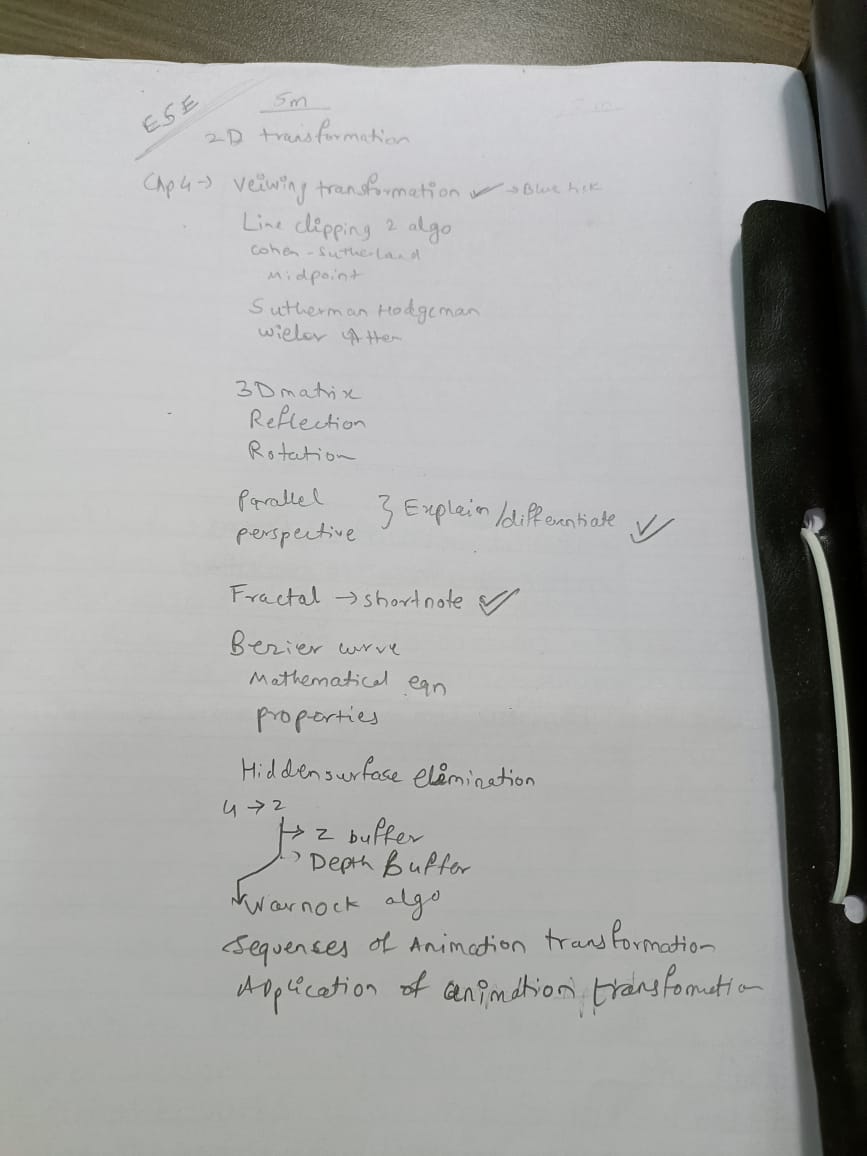 ESE
5m
2D transformation
Chp 4 → Veiwing transformation ✓ → Blue tick
Line clipping 2 algo
cohen - Sutherland
Midpoint
Sutherman Hodgeman
Wieler Atten
3D matrix
Reflection
Rotation
Parallel
perspective } Explain / differentiate ✓
Fractal → shortnote ✓
Bezier curve
Mathematical eqn
properties
Hidden surfase elimination
4 → 2
→ Z buffer
→ Depth Buffer
Warnock algo
Sequenses of Animation transformation
Application of animation transfomation